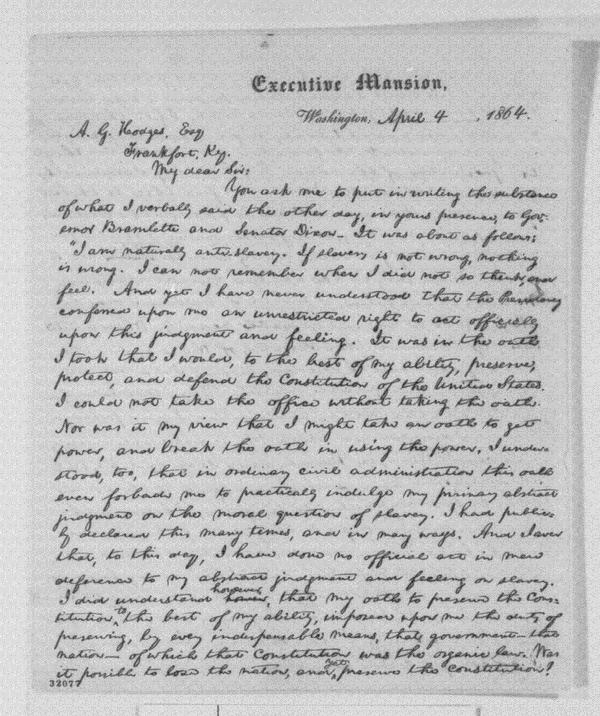 Executive Mansion,
Washington, April 4, 1864.
A. G. Hodges, Esq
Frankfort, Ky.
My dear Sir:
You ask me to put in writing the substance
of what I verbally said the other day, in your presence, to Gov-
ernor Bramlette and Senator Dixon. It was about as follows:
"I am naturally anti-slavery. If slavery is not wrong, nothing
is wrong. I can not remember when I did not so think, and
feel. And yet I have never understood that the Presidency
conferred upon me an unrestricted right to act officially
upon this judgment and feeling. It was in the oath
I took that I would, to the best of my ability, preserve,
protect, and defend the Constitution of the United States.
I could not take the office without taking the oath.
Nor was it my view that I might take an oath to get
power, and break the oath in using the power. I under-
stood, too, that in ordinary civil administration this oath
even forbade me to practically indulge my primary abstract
judgment on the moral question of slavery. I had public-
ly declared this many times, and in many ways. And I aver
that, to this day, I have done no official act in mere
deference to my abstract judgment and feeling on slavery.
I did understand however, that my oath to preserve the Con-
stitution to the best of my ability, imposed upon me the duty of
preserving, by every indispensable means, that government— that
nation— of which that Constitution was the organic law. Was
it possible to lose the nation, and yet preserve the Constitution?
32077